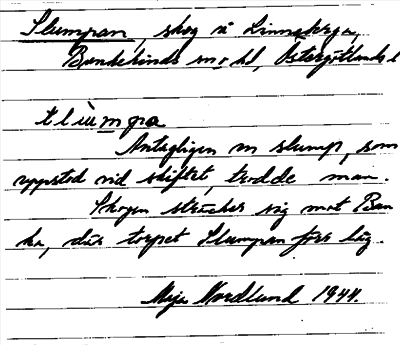 Slumpan, skog i Linneberga,
Bankekinds sn o hd, Östergötlands l
Antagligen en slump, som
uppstod vid skiftet, trodde man.
Skogen sträcker sig mot Ban
ka, där torpet Slumpan förr låg.
Maja Nordlund 1944.